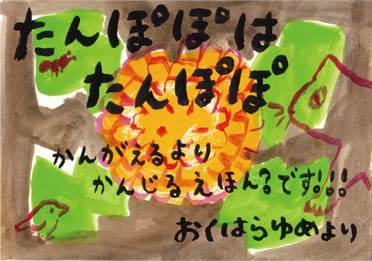 たんぽぽは
たんぽぽ
かんがえるより
かんじるえほん?です!!!
おくはらゆめより